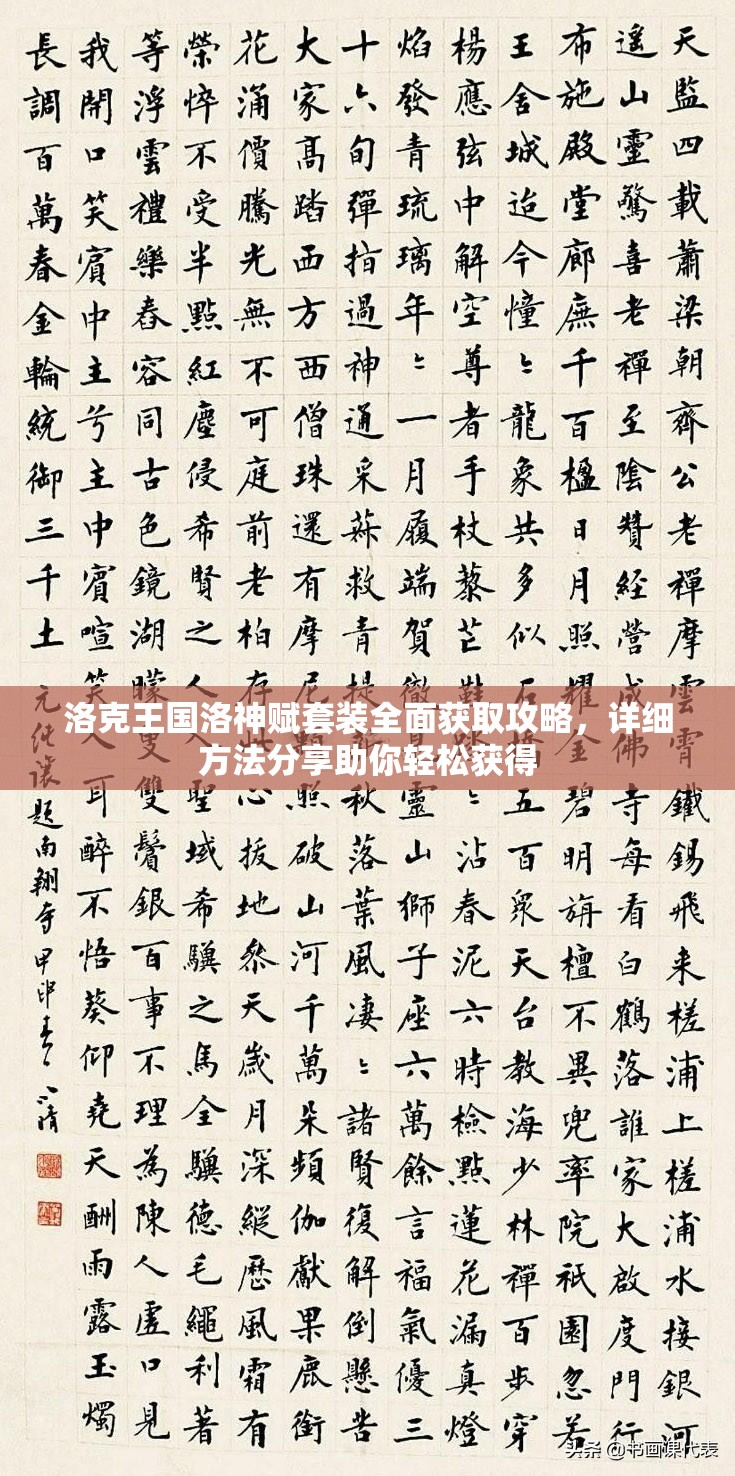 天監四載蕭梁朝齊公老禪摩雲霄鐵錫飛来槎浦上槎浦水接銀河
遥山靈驚喜老禪至陰贊經營成佛寺每看白鶴落誰家大啟度門行
布施殿堂廊廡千百楹日月照耀金碧明旃檀不異兜率院祇園忽若
王舍城迨今憧〻龍象共多似石五百眾天台教海少林禪百步穿
楊應弦中解空尊者手杖藜芒鞋〻沾春泥六時檢點蓮花漏真燈
焰發青琉璃年〻一月履端賀靈山獅子座六萬餘言福氣優三
十六旬彈指過神通采蘇救青提秋落葉風淒〻諸賢復解倒懸苦
大家高踏西方西僧珠還有摩尼照破山河千萬朵頻伽獻果鹿銜
花涌價騰光無不可庭前老柏存心拔地參天歲月深縱歷風霜有
榮悴不受半點紅塵侵希賢之人聖域希驥之馬全驥德毛繩利著
等浮雲禮樂舂容同古色鏡湖曚叟雙鬢銀百事不理為陳人虛口見
我開口笑賓中主兮主中賓喧笑人耳醉不悟葵仰堯天酬雨露玉燭
長調百萬春金輪統御三千土
元純讓題南翔寺甲申春
洛克王国洛神赋套装全面获取攻略，详细
方法分享助你轻松获得
头条 @书画课代表